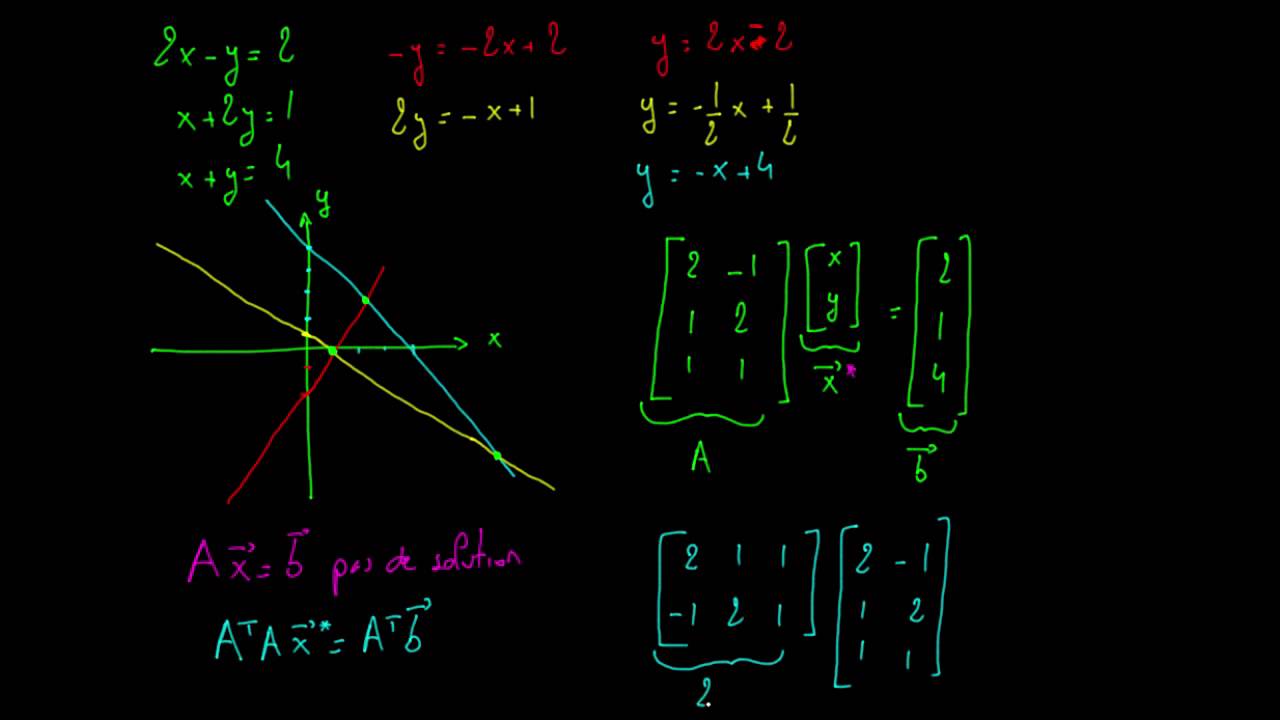 2x - y = 2    -y = -2x + 2    y = 2x - 2
x + 2y = 1    2y = -x + 1    y = -1/2 x + 1/2
x + y = 4    y = -x + 4
y
x
[2 -1; 1 2; 1 1] [x; y] = [2; 1; 4]
x⃗*
A    b⃗
A x⃗ = b⃗ pas de solution
AᵀA x⃗* = Aᵀ b⃗
[2 1 1; -1 2 1] [2 -1; 1 2; 1 1]
2